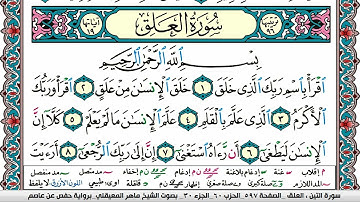 سُورَةُ العَلَقِ
بِسْمِ اللَّهِ الرَّحْمَٰنِ الرَّحِيمِ
ٱقْرَأْ بِٱسْمِ رَبِّكَ ٱلَّذِى خَلَقَ ١ خَلَقَ ٱلْإِنسَٰنَ مِنْ عَلَقٍ ٢ ٱقْرَأْ وَرَبُّكَ
ٱلْأَكْرَمُ ٣ ٱلَّذِى عَلَّمَ بِٱلْقَلَمِ ٤ عَلَّمَ ٱلْإِنسَٰنَ مَا لَمْ يَعْلَمْ ٥ كَلَّآ إِنَّ
ٱلْإِنسَٰنَ لَيَطْغَىٰٓ ٦ أَن رَّءَاهُ ٱسْتَغْنَىٰٓ ٧ إِنَّ إِلَىٰ رَبِّكَ ٱلرُّجْعَىٰٓ ٨ أَرَءَيْتَ
سورة التين ، العلق . الصفحة ٥٩٧ الحزب ٦٠ الجزء ٣٠ . بصوت الشيخ ماهر المعيقلي . برواية حفص عن عاصم